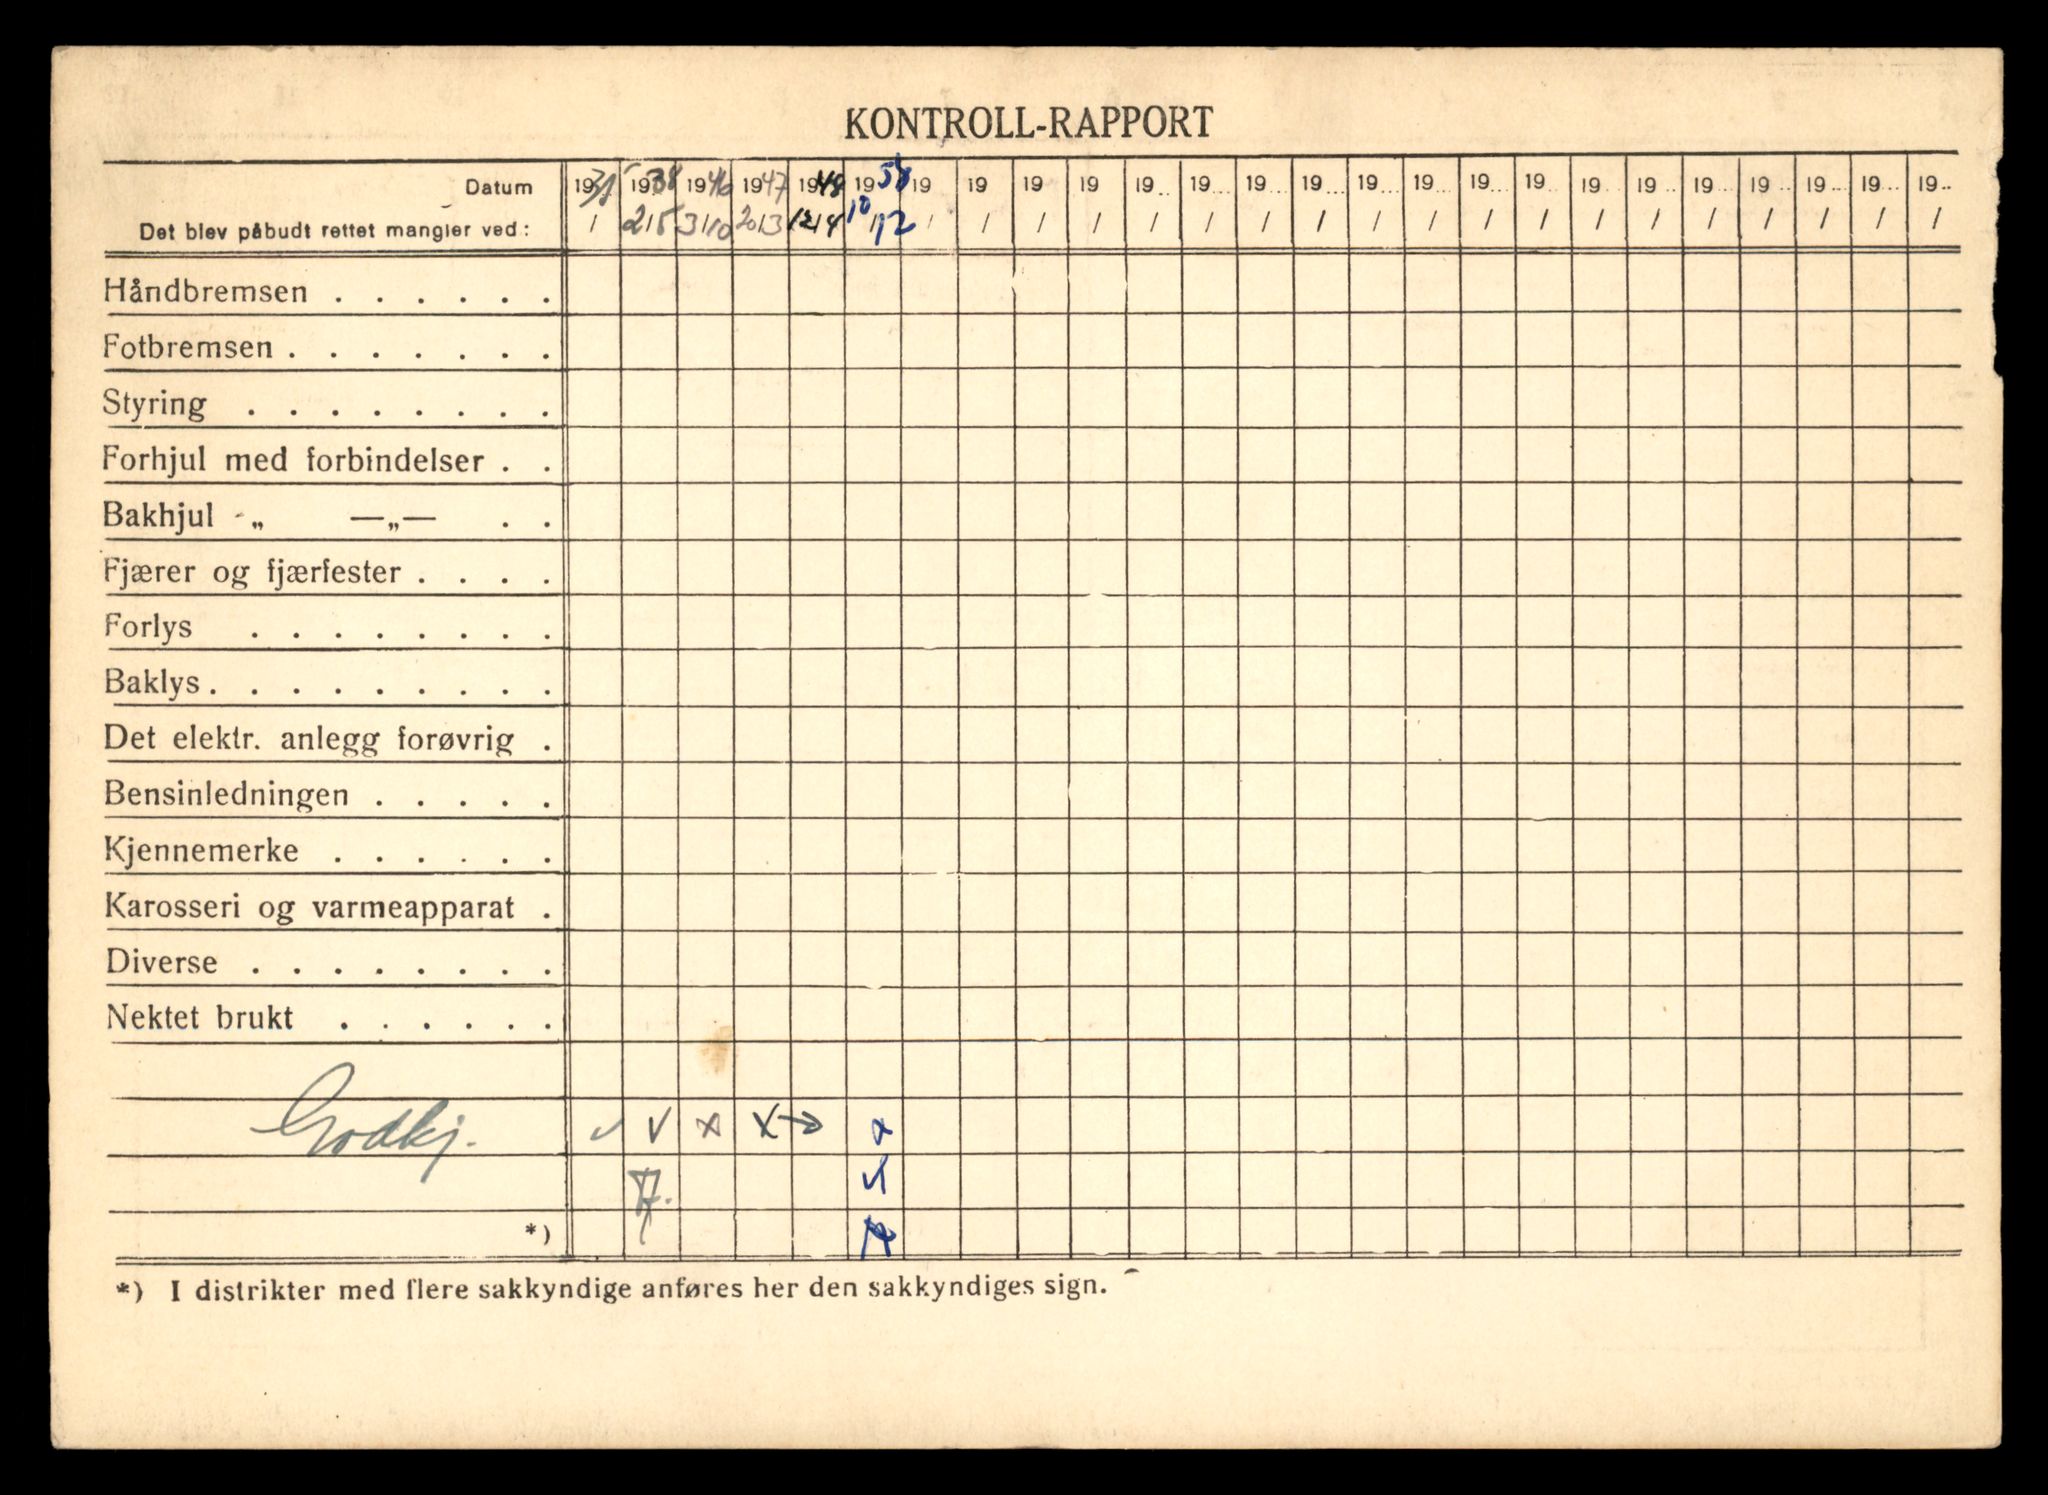 KONTROLL-RAPPORT
Datum 19 1938 1946 1947 1948 1958 19 19 19 19 19... 19... 19... 19... 19... 19... 19... 19... 19... 19... 19... 19... 19... 19... 19..
Det blev påbudt rettet mangler ved: / 2/5 3/10 20/3 12/4 10/12 / / / / / / / / / / / / / / / / / / /
Håndbremsen . . . . . .
Fotbremsen . . . . . . .
Styring . . . . . . . .
Forhjul med forbindelser . .
Bakhjul „ —„— . .
Fjærer og fjærfester . . . .
Forlys . . . . . . . .
Baklys . . . . . . . . .
Det elektr. anlegg forøvrig .
Bensinledningen . . . . .
Kjennemerke . . . . . .
Karosseri og varmeapparat .
Diverse . . . . . . . .
Nektet brukt . . . . . .
Godkj. ✓ ✓ x x→ x
✓
*)
*) I distrikter med flere sakkyndige anføres her den sakkyndiges sign.